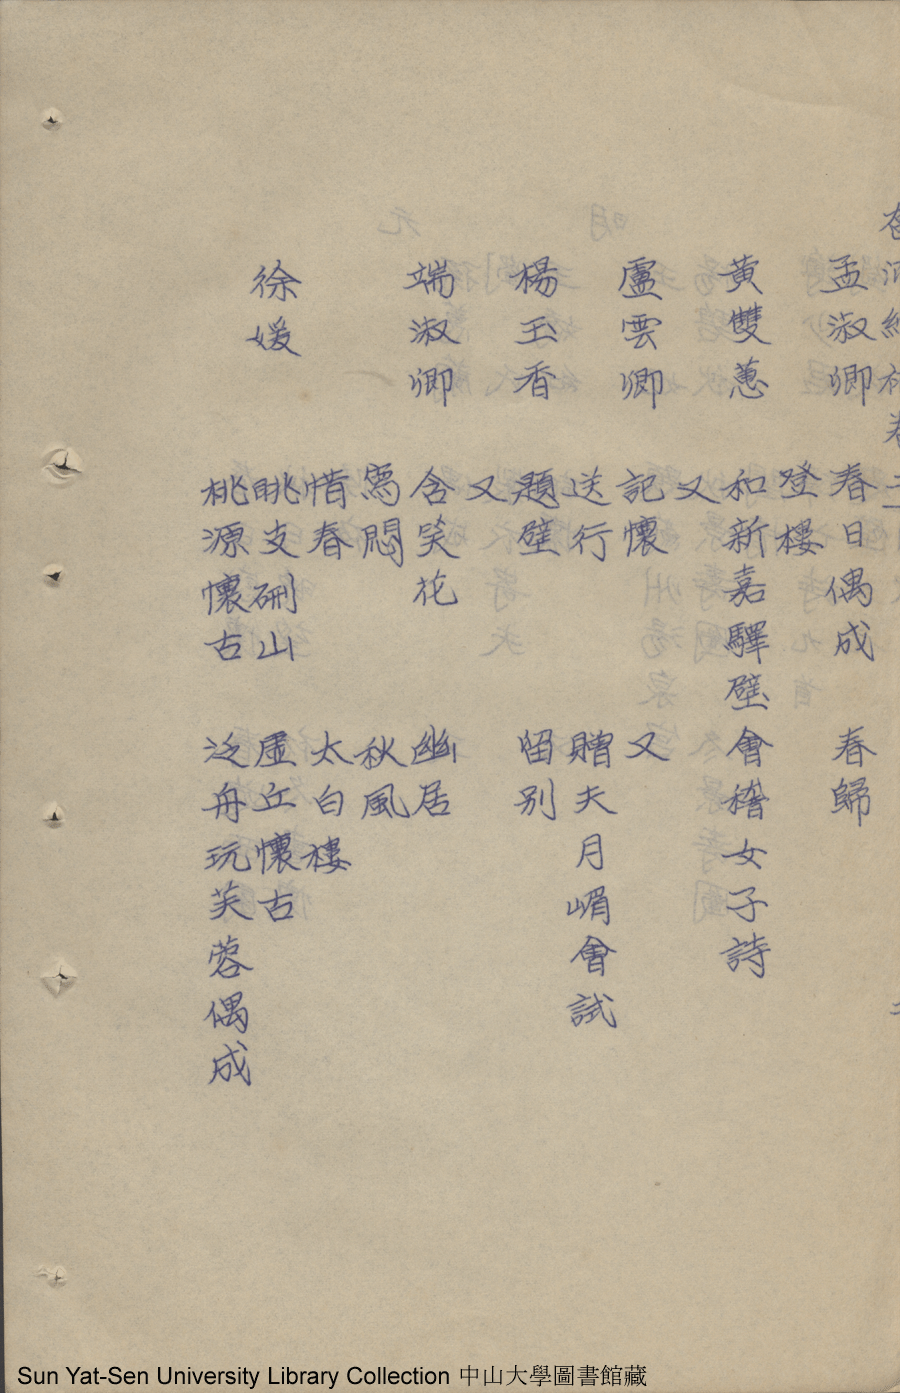 孟淑卿 春日偶成 春歸
登樓
黃雙蕙 和新嘉驛壁會稽女子詩
又
盧雲卿 記懷 又
送行 贈夫月嵋會試
楊玉香 題壁 留別
又
端淑卿 含笑花 幽居
寫悶 秋風
惜春 太白樓
徐媛 眺支硎山 虛丘懷古
桃源懷古 泛舟玩芙蓉偶成
Sun Yat-Sen University Library Collection 中山大學圖書館藏